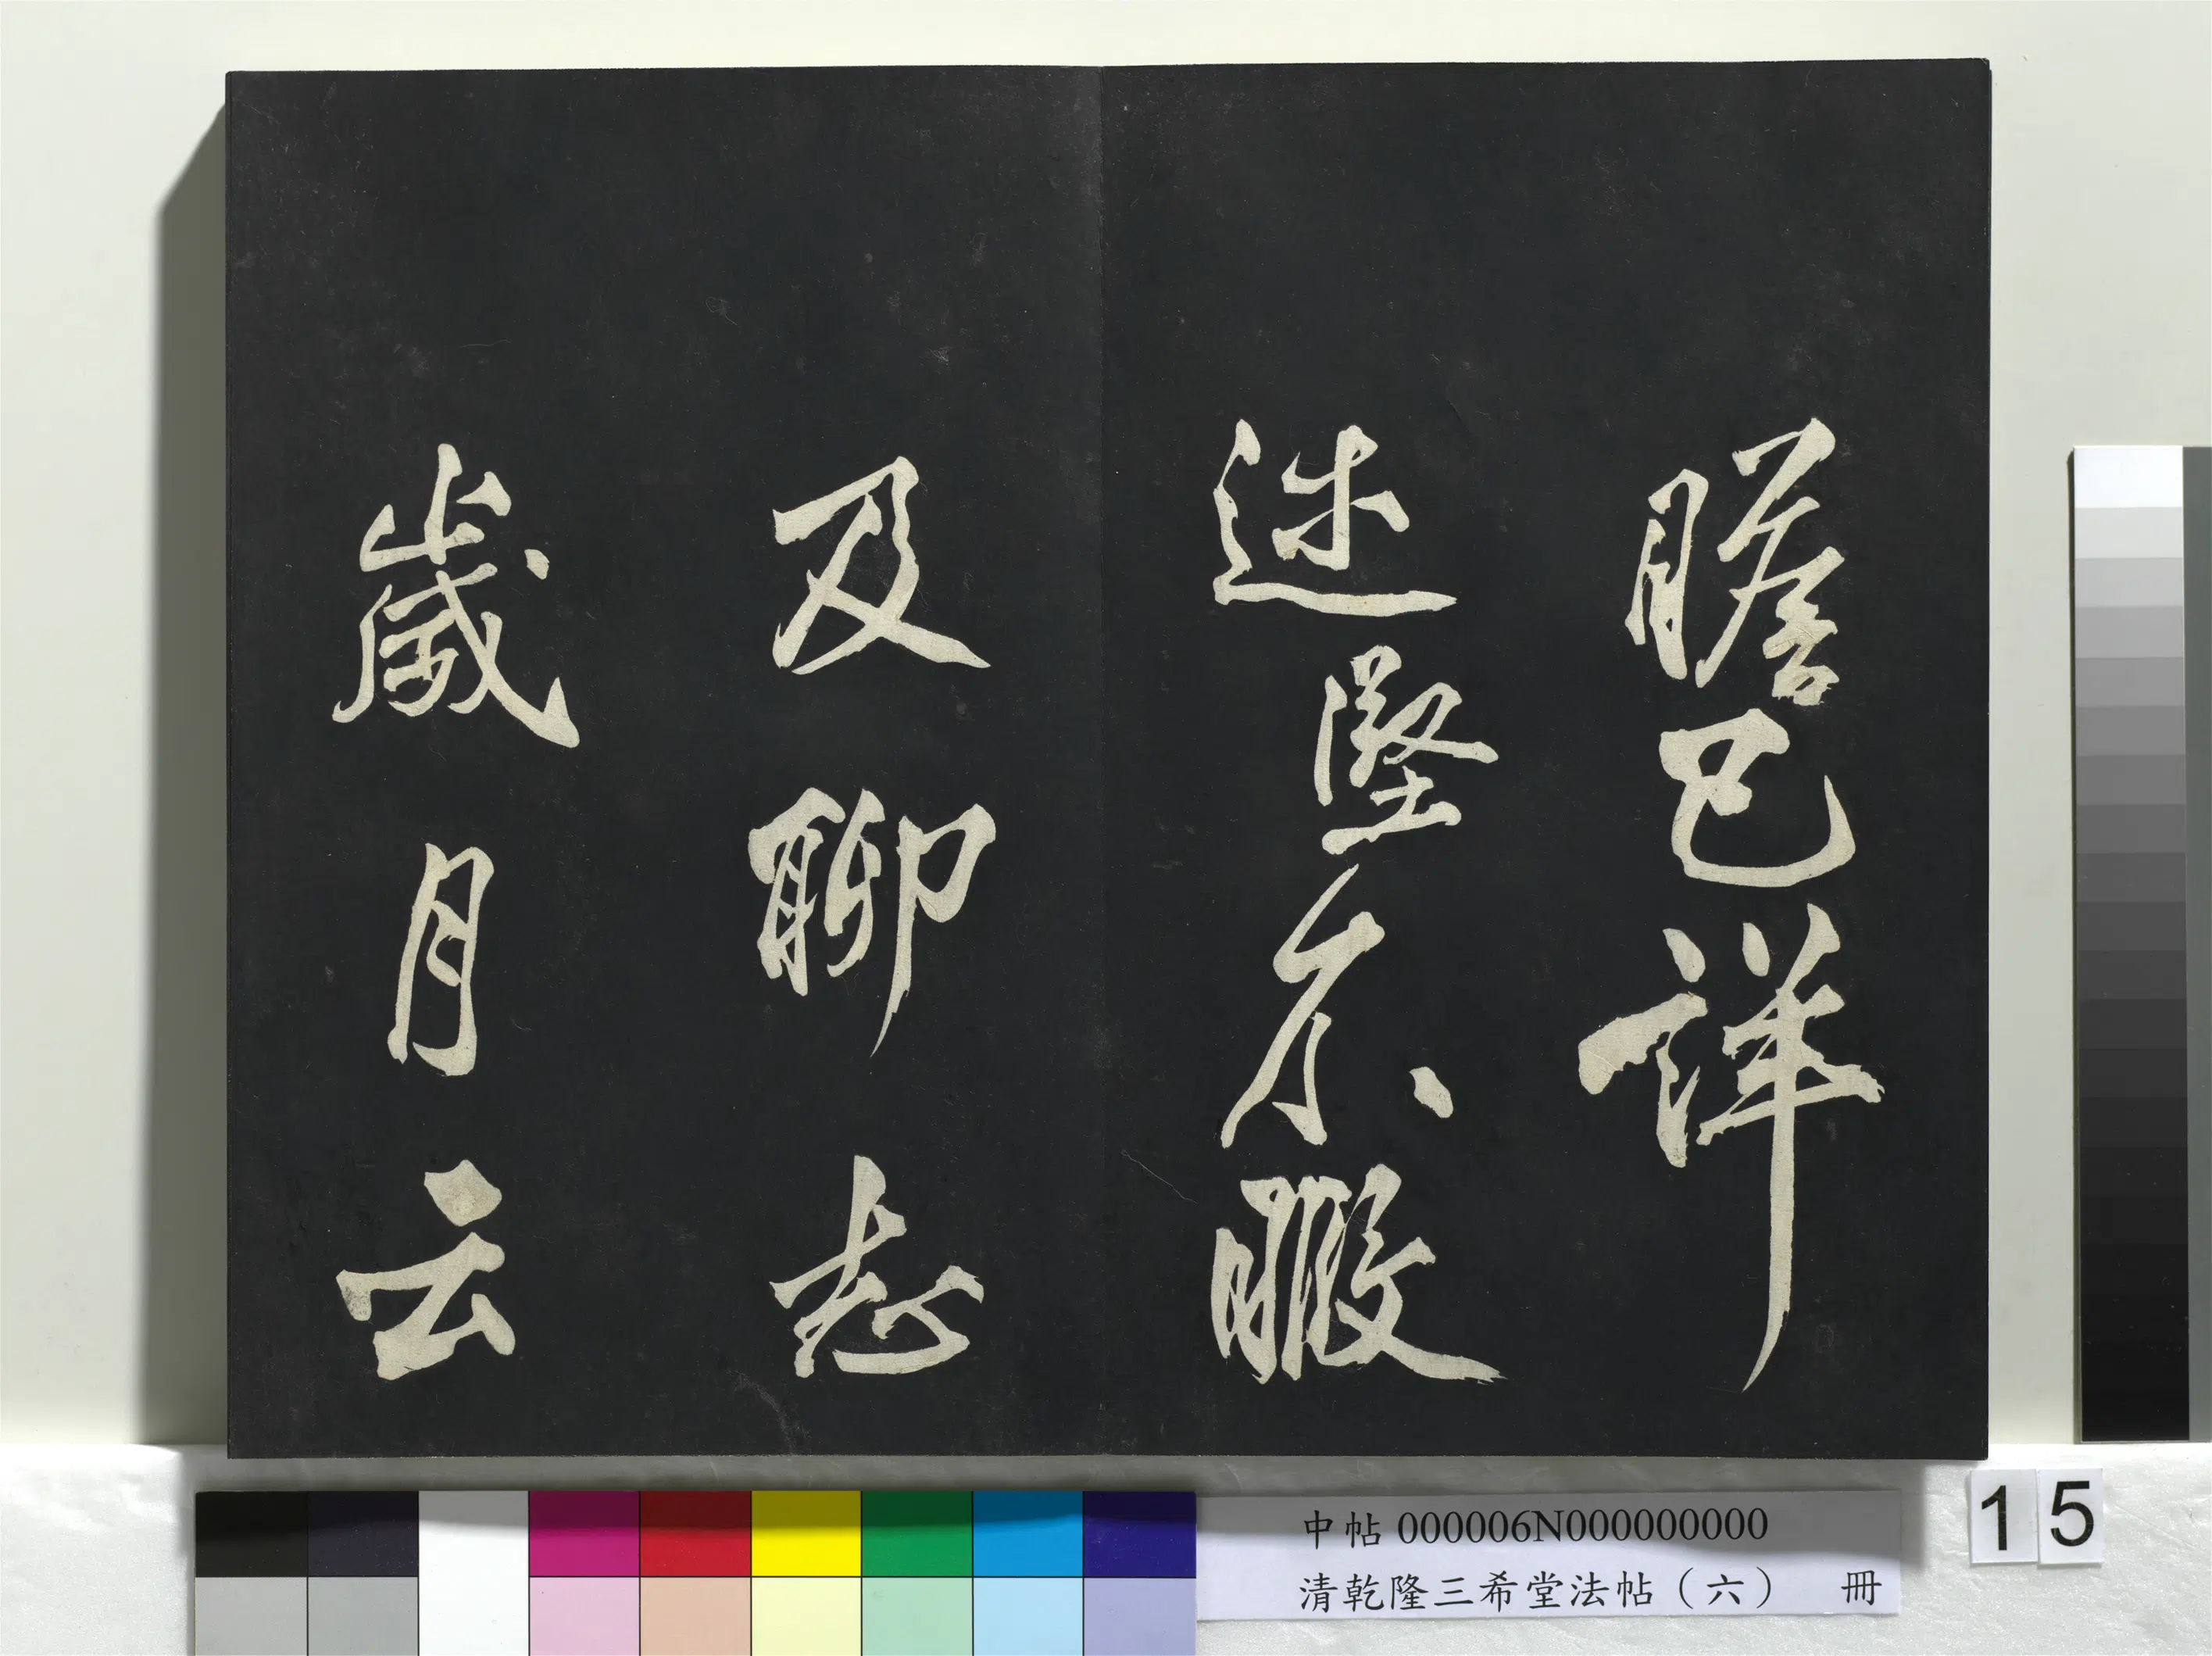 瞻已詳
述堅不暇
及聊志
歲月云
中帖 000006N000000000
清乾隆三希堂法帖（六） 冊
15